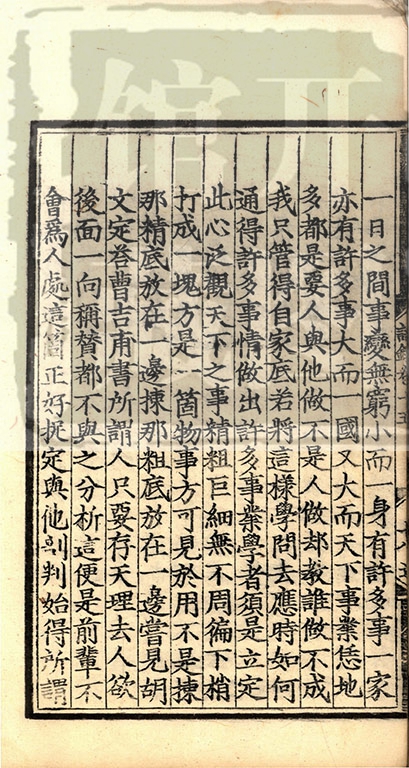 一日之間事變無窮小而一身有許多事一家
亦有許多事大而一國又大而天下事業恁地
多都是要人與他做不是人做却教誰做不成
我只管得自家底若將這樣學問去應時如何
通得許多事情做出許多事業學者須是立定
此心泛觀天下之事精粗巨細無不周徧下梢
打成一塊方是一箇物事方可見於用不是揀
那精底放在一邊揀那粗底放在一邊嘗見胡
文定荅曽吉甫書所謂人只要存天理去人欲
後面一向稱賛都不與之分析這便是前輩不
會爲人處這箇正好捉定與他剖判始得所謂